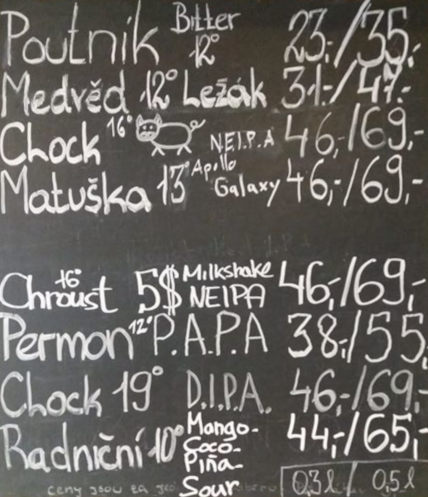 Poutník Bitter 12° 23,-/35,-
Medvěd 12° Ležák 31,-/47,-
Chock 16° N.E.I.P.A 46,-/69,-
Matuška 13° Apollo Galaxy 46,-/69,-
Chroust 16° 5$ Milkshake NEIPA 46,-/69,-
Permon 12° P.A.P.A 38,-/55,
Chock 19° D.I.P.A. 46,-/69,-
Radniční 10° Mango- Coco- Piña- Sour 44,-/65,-
ceny jsou za
0,3 l / 0,5 l